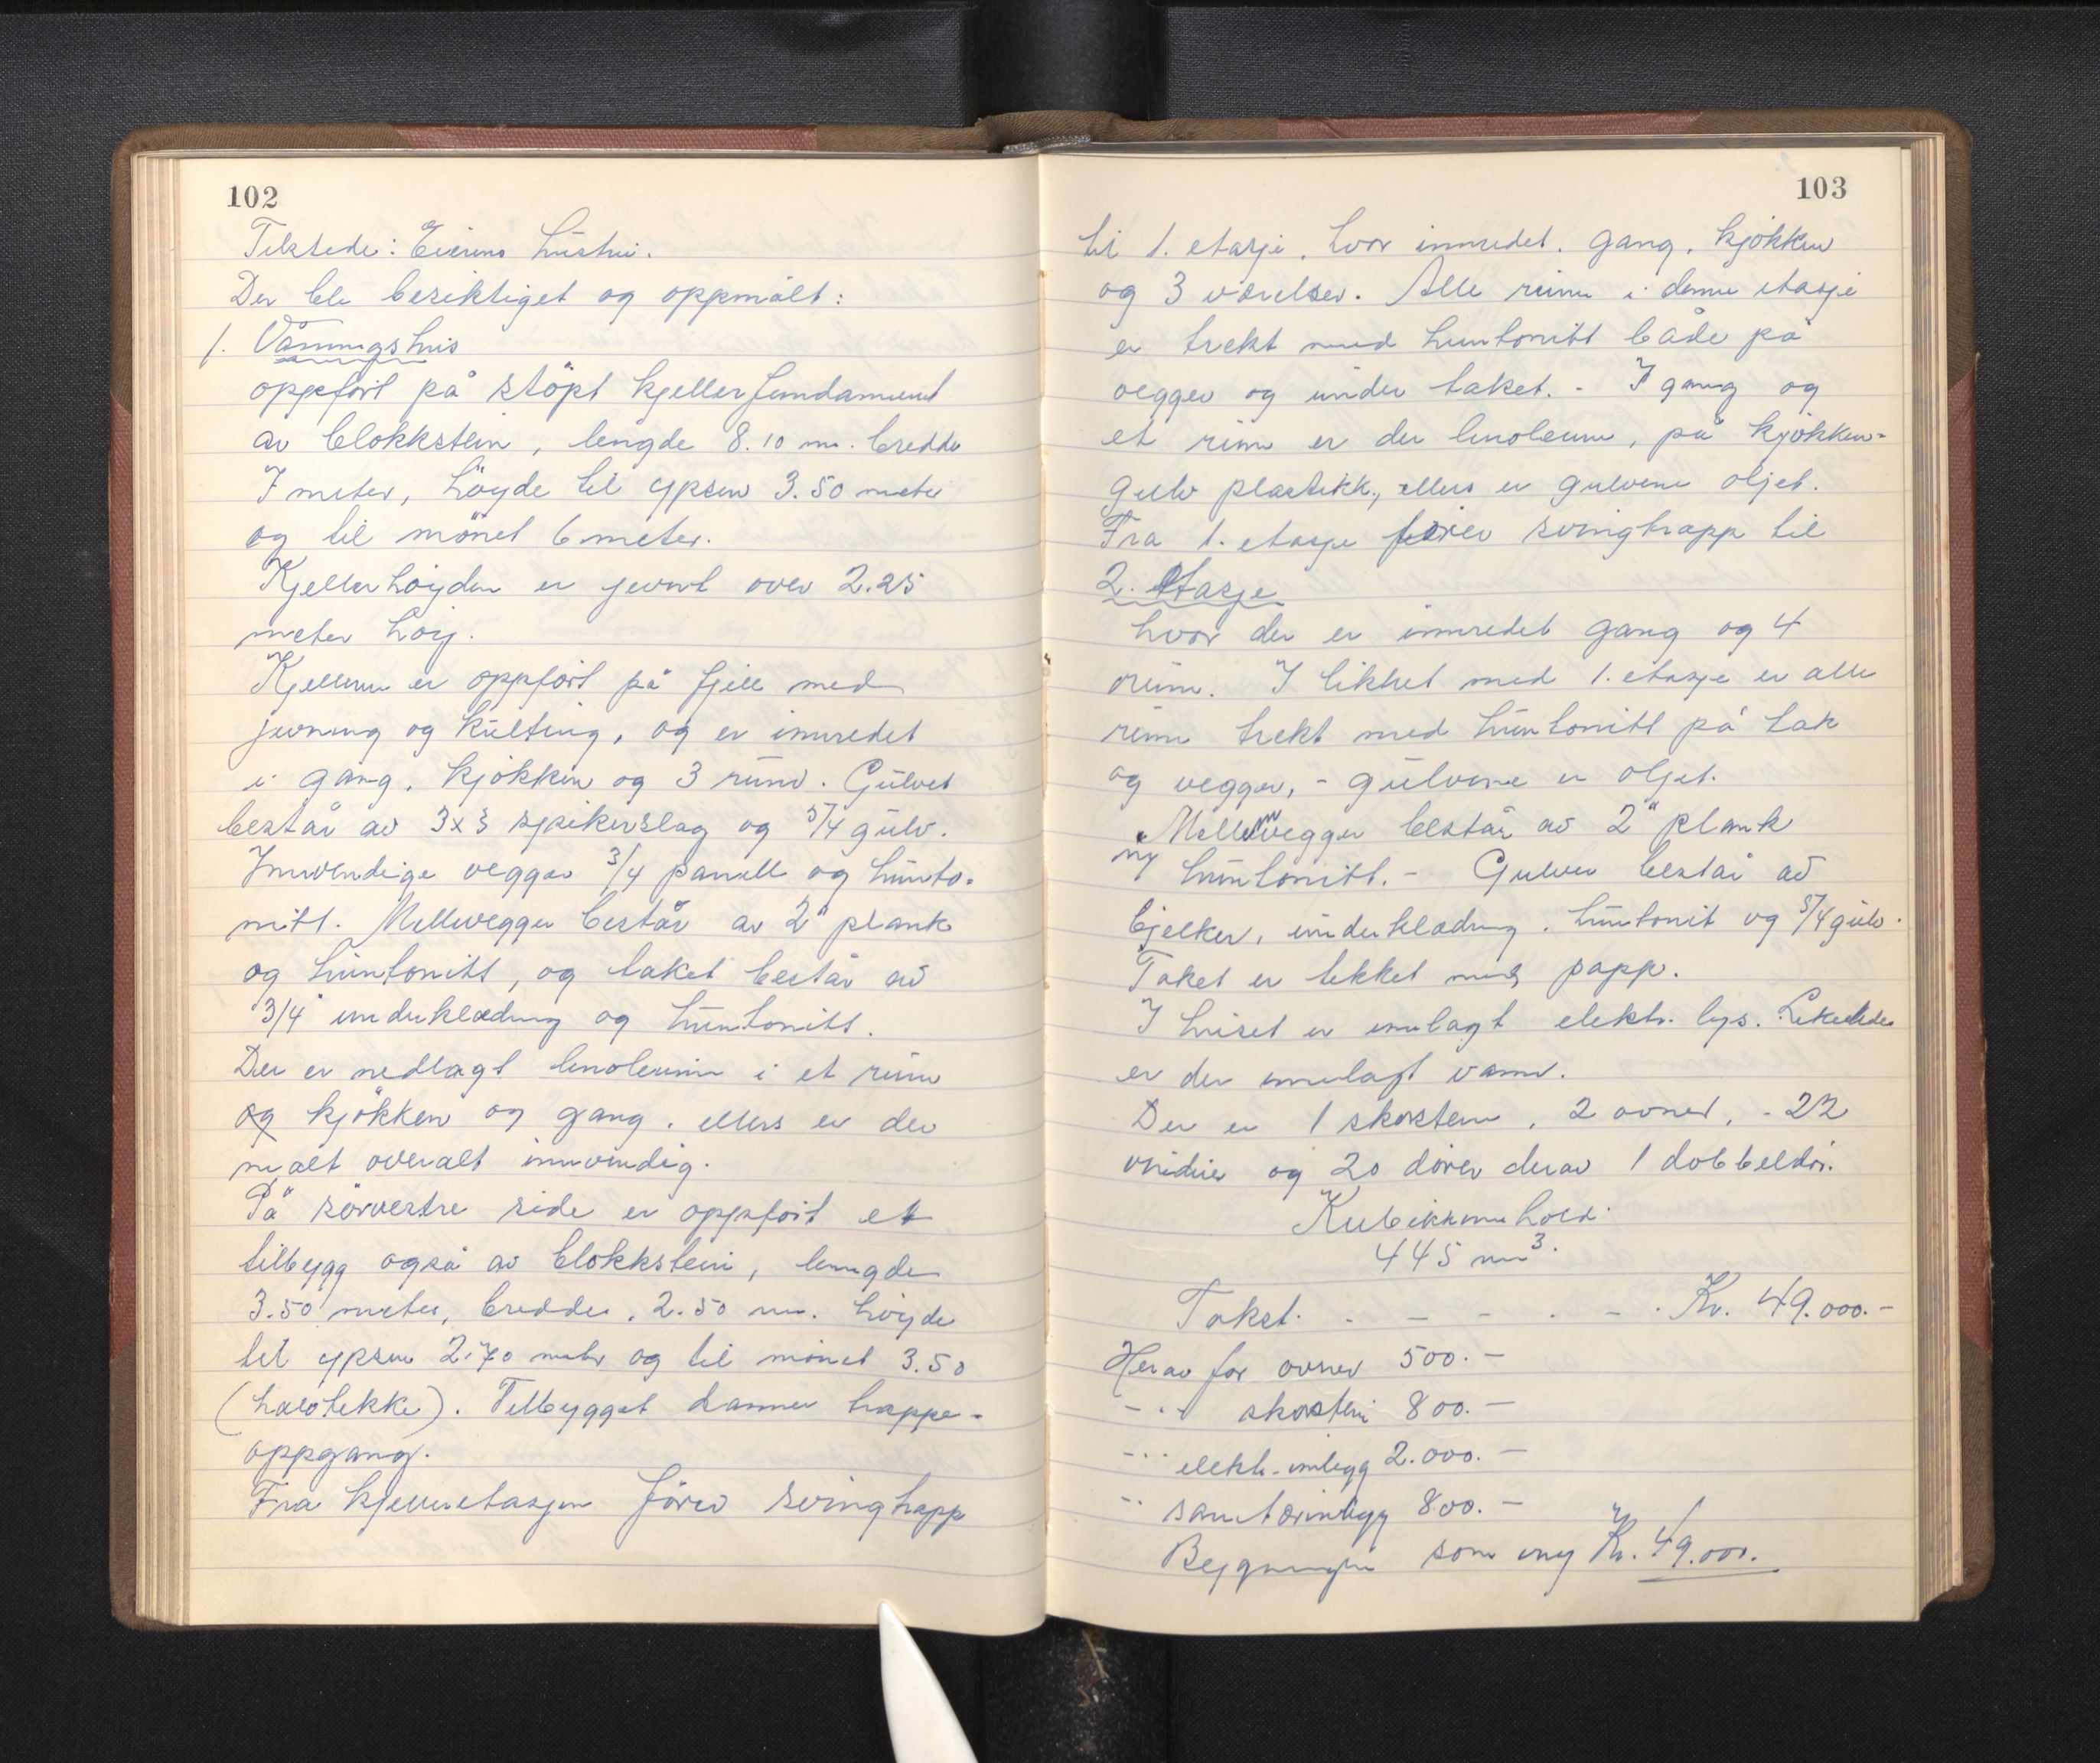 102
Tilstede: Eierens hustru.
Der ble besiktiget og oppmålt:
1. Våningshus
oppført på støpt kjellerfundament
av blokkstein, lengde 8.10 m. bredde
7 meter, høyde til gpsen 3.50 meter
og til mønet 6 meter.
Kjellerhøiden er jevnt over 2.25
meter høy.
Kjelleren er oppført på fjell med
jevning og kulting, og er innredet
i gang, kjøkken og 3 rum. Gulvet
består av 3x3 spikerslag og 5/4 gulv.
Innvendige vegger 3/4 panell og hunto-
nitt. Mellevegger består av 2" plank
og huntonitt, og taket består av
3/4" underklædning og huntonitt.
Der er nedlagt linoleum i et rum
og kjøkken og gang, ellers er der
malt overalt innvendig.
På sørvestre side er oppført et
tilbygg også av blokkstein, lengde
3.50 meter, bredde, 2.50 m. høyde
til gpsen 2.70 meter og til mønet 3.50
(halvtekke). Tilbygget danner trappe-
oppgang.
Fra kjelleretasjen fører svingtrapp
103
til 1. etasje, hvor innredet. gang, kjøkken
og 3 værelser. Alle rum i denne etasje
er trekt med huntonitt både på
vegger og under taket. - I gang og
et rum er der linoleum, på kjøkken-
gulv plastikk, ellers er gulvene oljet.
Fra 1. etasje fører svingtrapp til
2. Etasje
hvor der er innredet gang og 4
rum. I likhet med 1. etasje er alle
rum trekt med huntonitt på tak
og vegger, - gulvene er oljet.
Mellemvegger består av 2" plank
og huntonitt. - Gulver består av
bjelker, underklædning, huntonit og 5/4 gulv.
Taket er tekket med papp.
I huset er innlagt elektr. lys. Likeledes
er der innlagt vann.
Der er 1 skorstein, 2 ovner, - 22
vinduer og 20 dører derav 1 dobbeldør.
Kubikkinnhold:
445 m³.
Takst. . - - . - . Kr. 49.000.-
Herav for ovner 500.-
- " skorstein 800.-
- " elektr. innlegg 2.000.-
" sanitærinlegg 800.-
Bygningen som ny Kr. 49.000.